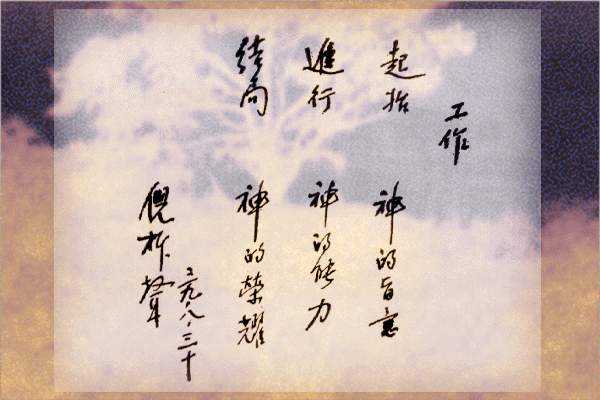 工作
起始 神的旨意
進行 神的能力
結局 神的榮耀
倪柝聲
八．三十